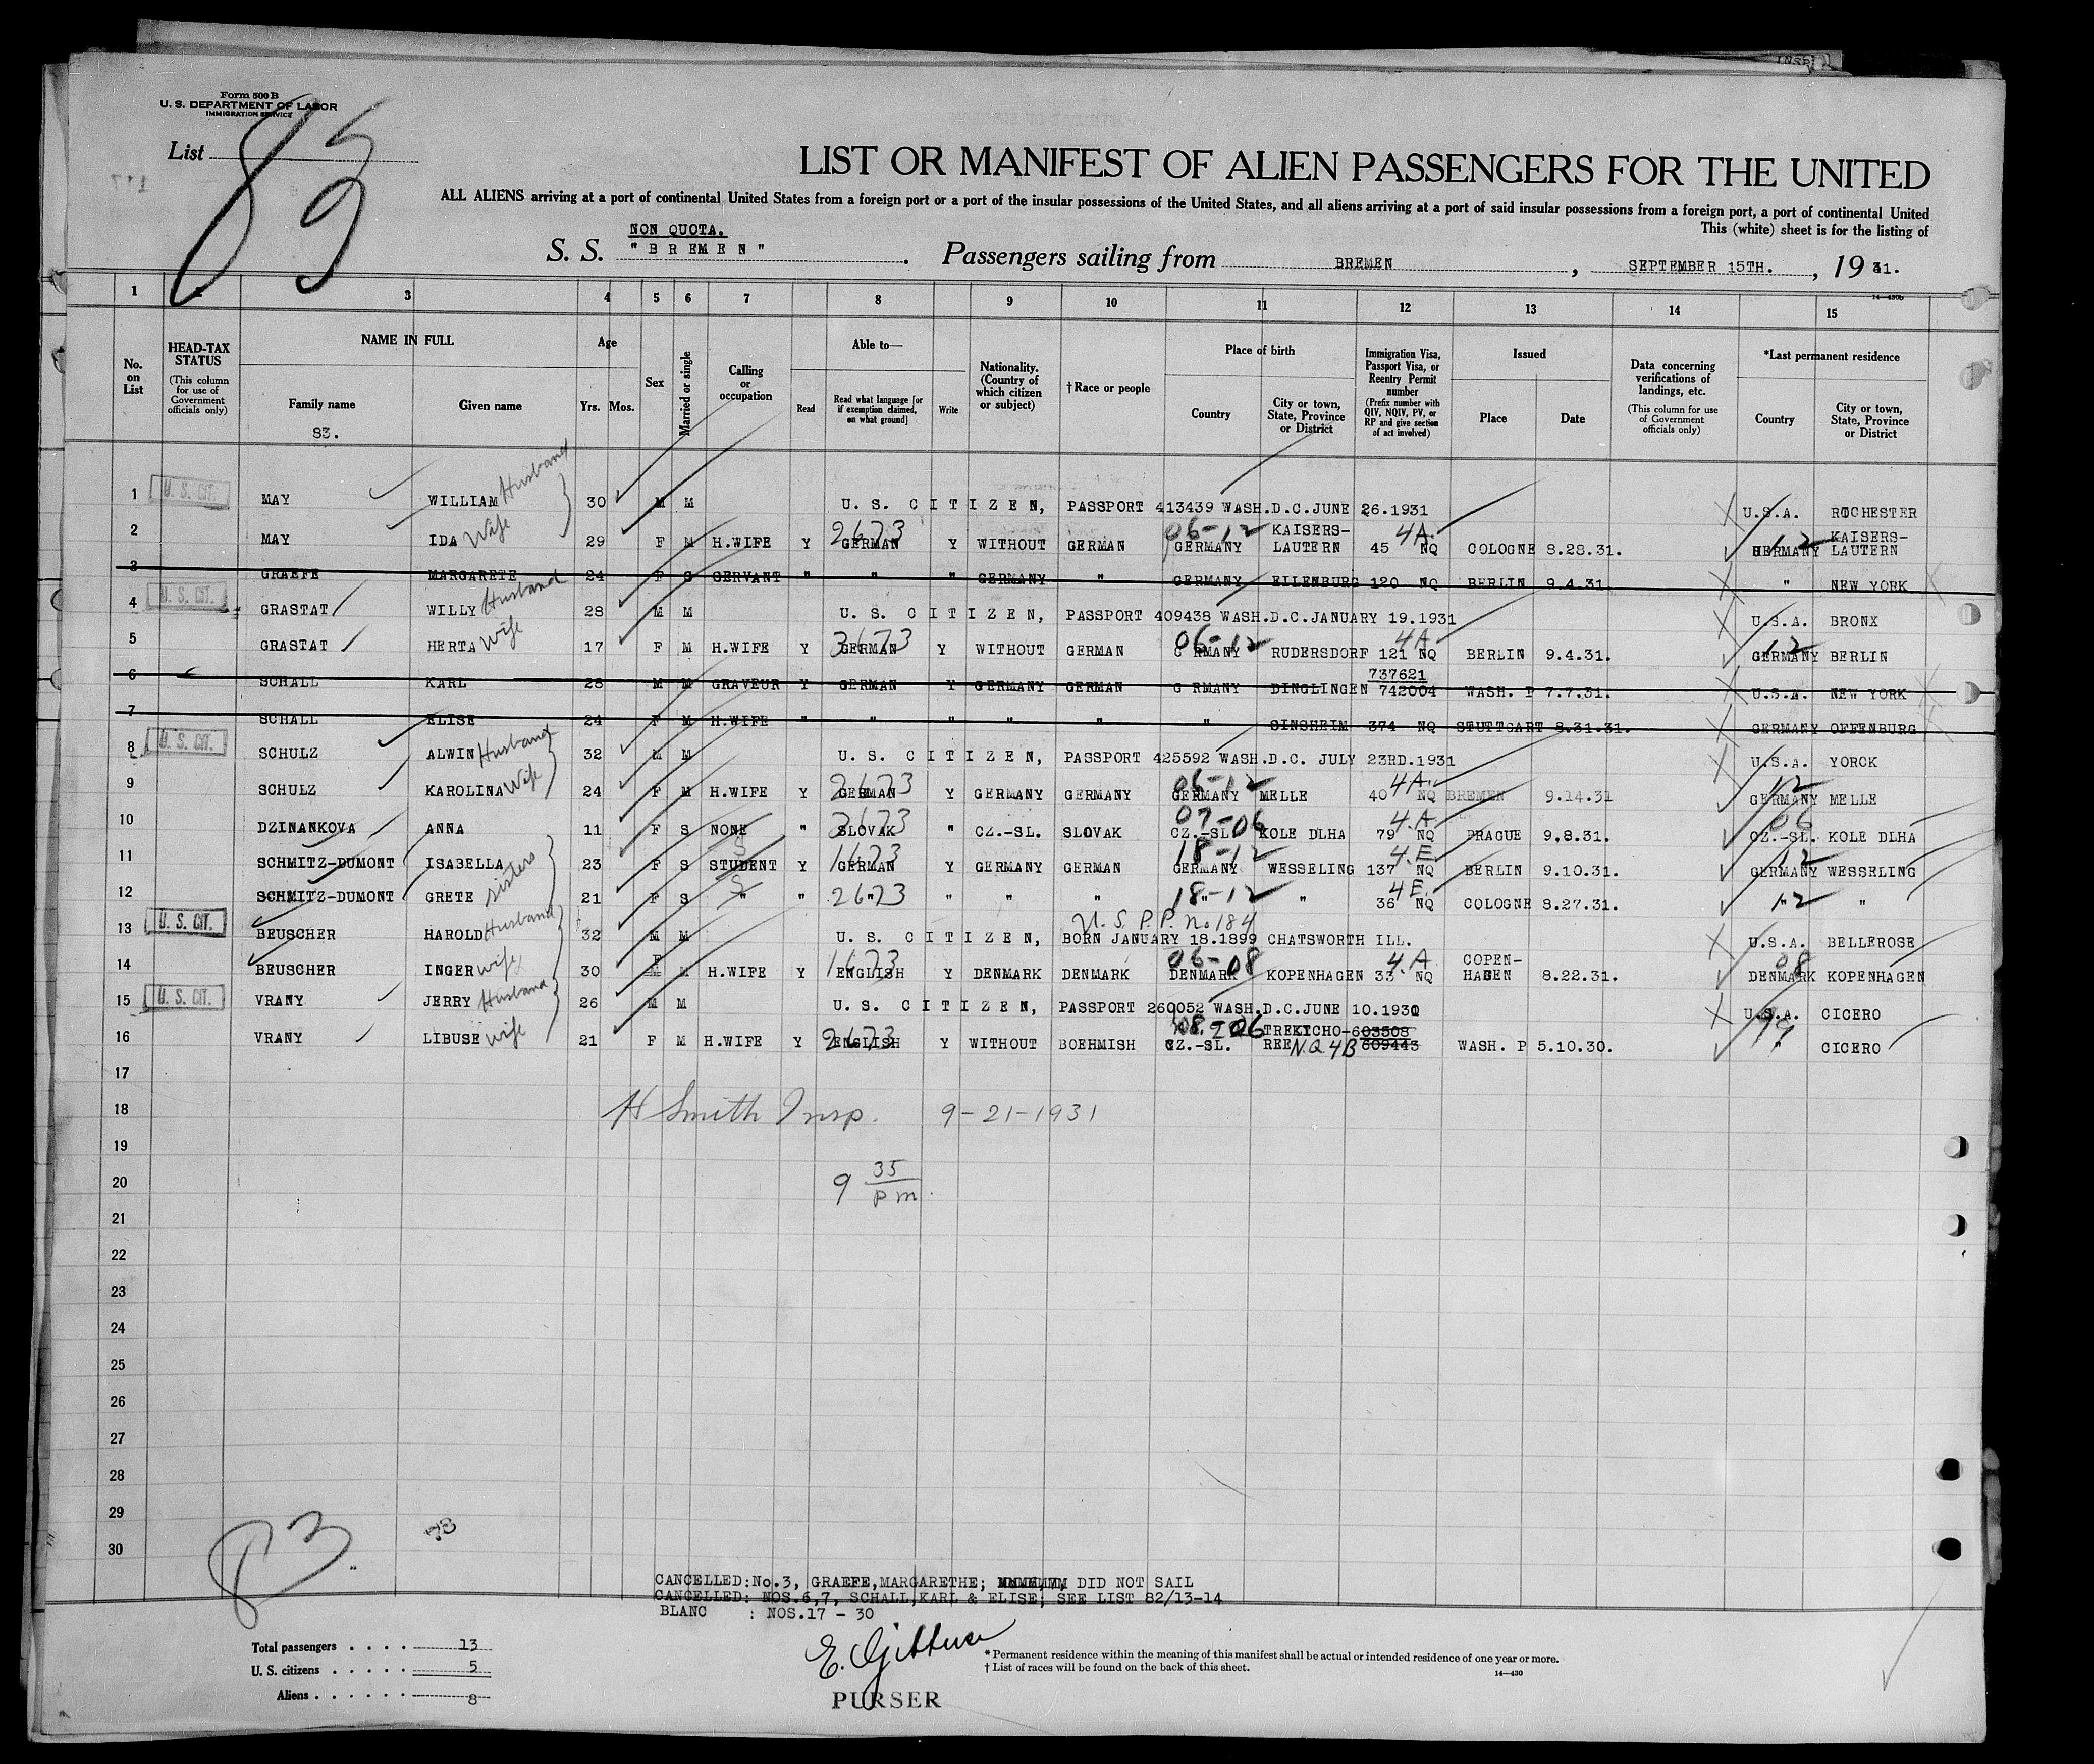 Form 500 B
U. S. DEPARTMENT OF LABOR
IMMIGRATION SERVICE
List
LIST OR MANIFEST OF ALIEN PASSENGERS FOR THE UNITED
ALL ALIENS arriving at a port of continental United States from a foreign port or a port of the insular possessions of the United States, and all aliens arriving at a port of said insular possessions from a foreign port, a port of continental United
This (white) sheet is for the listing of
NON QUOTA.
S. S. "BREMEN". Passengers sailing from BREMEN, SEPTEMBER 15TH., 1931.
14—430b
1 2 3 4 5 6 7 8 9 10 11 12 13 14 15
No. on List
HEAD-TAX STATUS (This column for use of Government officials only)
NAME IN FULL Family name Given name
Age Yrs. Mos.
Sex
Married or single
Calling or occupation
Able to— Read Read what language [or if exemption claimed, on what ground] Write
Nationality. (Country of which citizen or subject)
†Race or people
Place of birth Country City or town, State, Province or District
Immigration Visa, Passport Visa, or Reentry Permit number (Prefix number with QIV, NQIV, PV, or RP and give section of act involved)
Issued Place Date
Data concerning verifications of landings, etc. (This column for use of Government officials only)
*Last permanent residence Country City or town, State, Province or District
83.
1 U. S. CIT. MAY WILLIAM Husband 30 M M U. S. CITIZEN, PASSPORT 413439 WASH.D.C.JUNE 26.1931 U.S.A. ROCHESTER
2 MAY IDA Wife 29 F M H.WIFE Y GERMAN 2673 Y WITHOUT GERMAN 06-12 GERMANY KAISERS-LAUTERN 45 4A NQ COLOGNE 8.28.31. GERMANY 12 KAISERS-LAUTERN
3 GRAEFE MARGARETE 24 F S SERVANT " " " GERMANY " GERMANY EILENBURG 120 NQ BERLIN 9.4.31. " NEW YORK
4 U. S. CIT. GRASTAT WILLY Husband 28 M M U. S. CITIZEN, PASSPORT 409438 WASH.D.C.JANUARY 19.1931 U.S.A. BRONX
5 GRASTAT HERTA Wife 17 F M H.WIFE Y GERMAN 3673 Y WITHOUT GERMAN 06-12 G RMANY RUDERSDORF 121 4A NQ BERLIN 9.4.31. GERMANY 12 BERLIN
6 SCHALL KARL 28 M M GRAVEUR Y GERMAN Y GERMANY GERMAN G RMANY DINGLINGEN 737621 742004 WASH. P 7.7.31. U.S.A. NEW YORK
7 SCHALL ELISE 24 F M H.WIFE " " " " " " SINSHEIM 374 NQ STUTTGART 8.31.31. GERMANY OFFENBURG
8 U. S. CIT. SCHULZ ALWIN Husband 32 M M U. S. CITIZEN, PASSPORT 425592 WASH.D.C. JULY 23RD.1931 U.S.A. YORCK
9 SCHULZ KAROLINA Wife 24 F M H.WIFE Y GERMAN 2673 Y GERMANY GERMANY 06-12 GERMANY MELLE 40 4A NQ BREMEN 9.14.31 GERMANY 12 MELLE
10 DZINANKOVA ANNA 11 F S NONE " SLOVAK 3673 " CZ.-SL. SLOVAK 07-06 CZ.-SL KOLE DLHA 79 4A NQ PRAGUE 9.8.31. CZ.-SL. 06 KOLE DLHA
11 SCHMITZ-DUMONT ISABELLA 23 F S STUDENT Y GERMAN 1673 Y GERMANY GERMAN 18-12 GERMANY WESSELING 137 4E NQ BERLIN 9.10.31. GERMANY 12 WESSELING
12 SCHMITZ-DUMONT GRETE sisters 21 F S " " " 2673 " " " 18-12 " " 36 4E NQ COLOGNE 8.27.31. " 12 "
13 U. S. CIT. BEUSCHER HAROLD Husband 32 M M U. S. CITIZEN, U.S.P.P. No 184 BORN JANUARY 18.1899 CHATSWORTH ILL. U.S.A. BELLEROSE
14 BEUSCHER INGER wife 30 F M H.WIFE Y ENGLISH 1673 Y DENMARK DENMARK 06-08 DENMARK KOPENHAGEN 33 4A NQ COPEN-HAGEN 8.22.31. DENMARK 08 KOPENHAGEN
15 U. S. CIT. VRANY JERRY Husband 26 M M U. S. CITIZEN, PASSPORT 260052 WASH.D.C.JUNE 10.1930 U.S.A. CICERO
16 VRANY LIBUSE wife 21 F M H.WIFE Y ENGLISH 2673 Y WITHOUT BOEHMISH 08-06 CZ.-SL. N.Q 4B 603508 609443 WASH. P 5.10.30. 99 " CICERO
17
18 H Smith Insp. 9-21-1931
19
20 9 35 pm
21
22
23
24
25
26
27
28
29
30
83
CANCELLED:No.3, GRAEFE,MARGARETHE; DID NOT SAIL
CANCELLED: NOS.6,7, SCHALL,KARL & ELISE, SEE LIST 82/13-14
BLANC : NOS.17 - 30
Total passengers . . . . 13
U. S. citizens . . . . . 5
Aliens . . . . . . 8
PURSER
* Permanent residence within the meaning of this manifest shall be actual or intended residence of one year or more.
† List of races will be found on the back of this sheet.
14—430